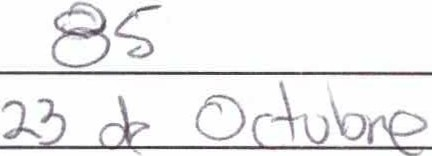 85
23 de Octubre